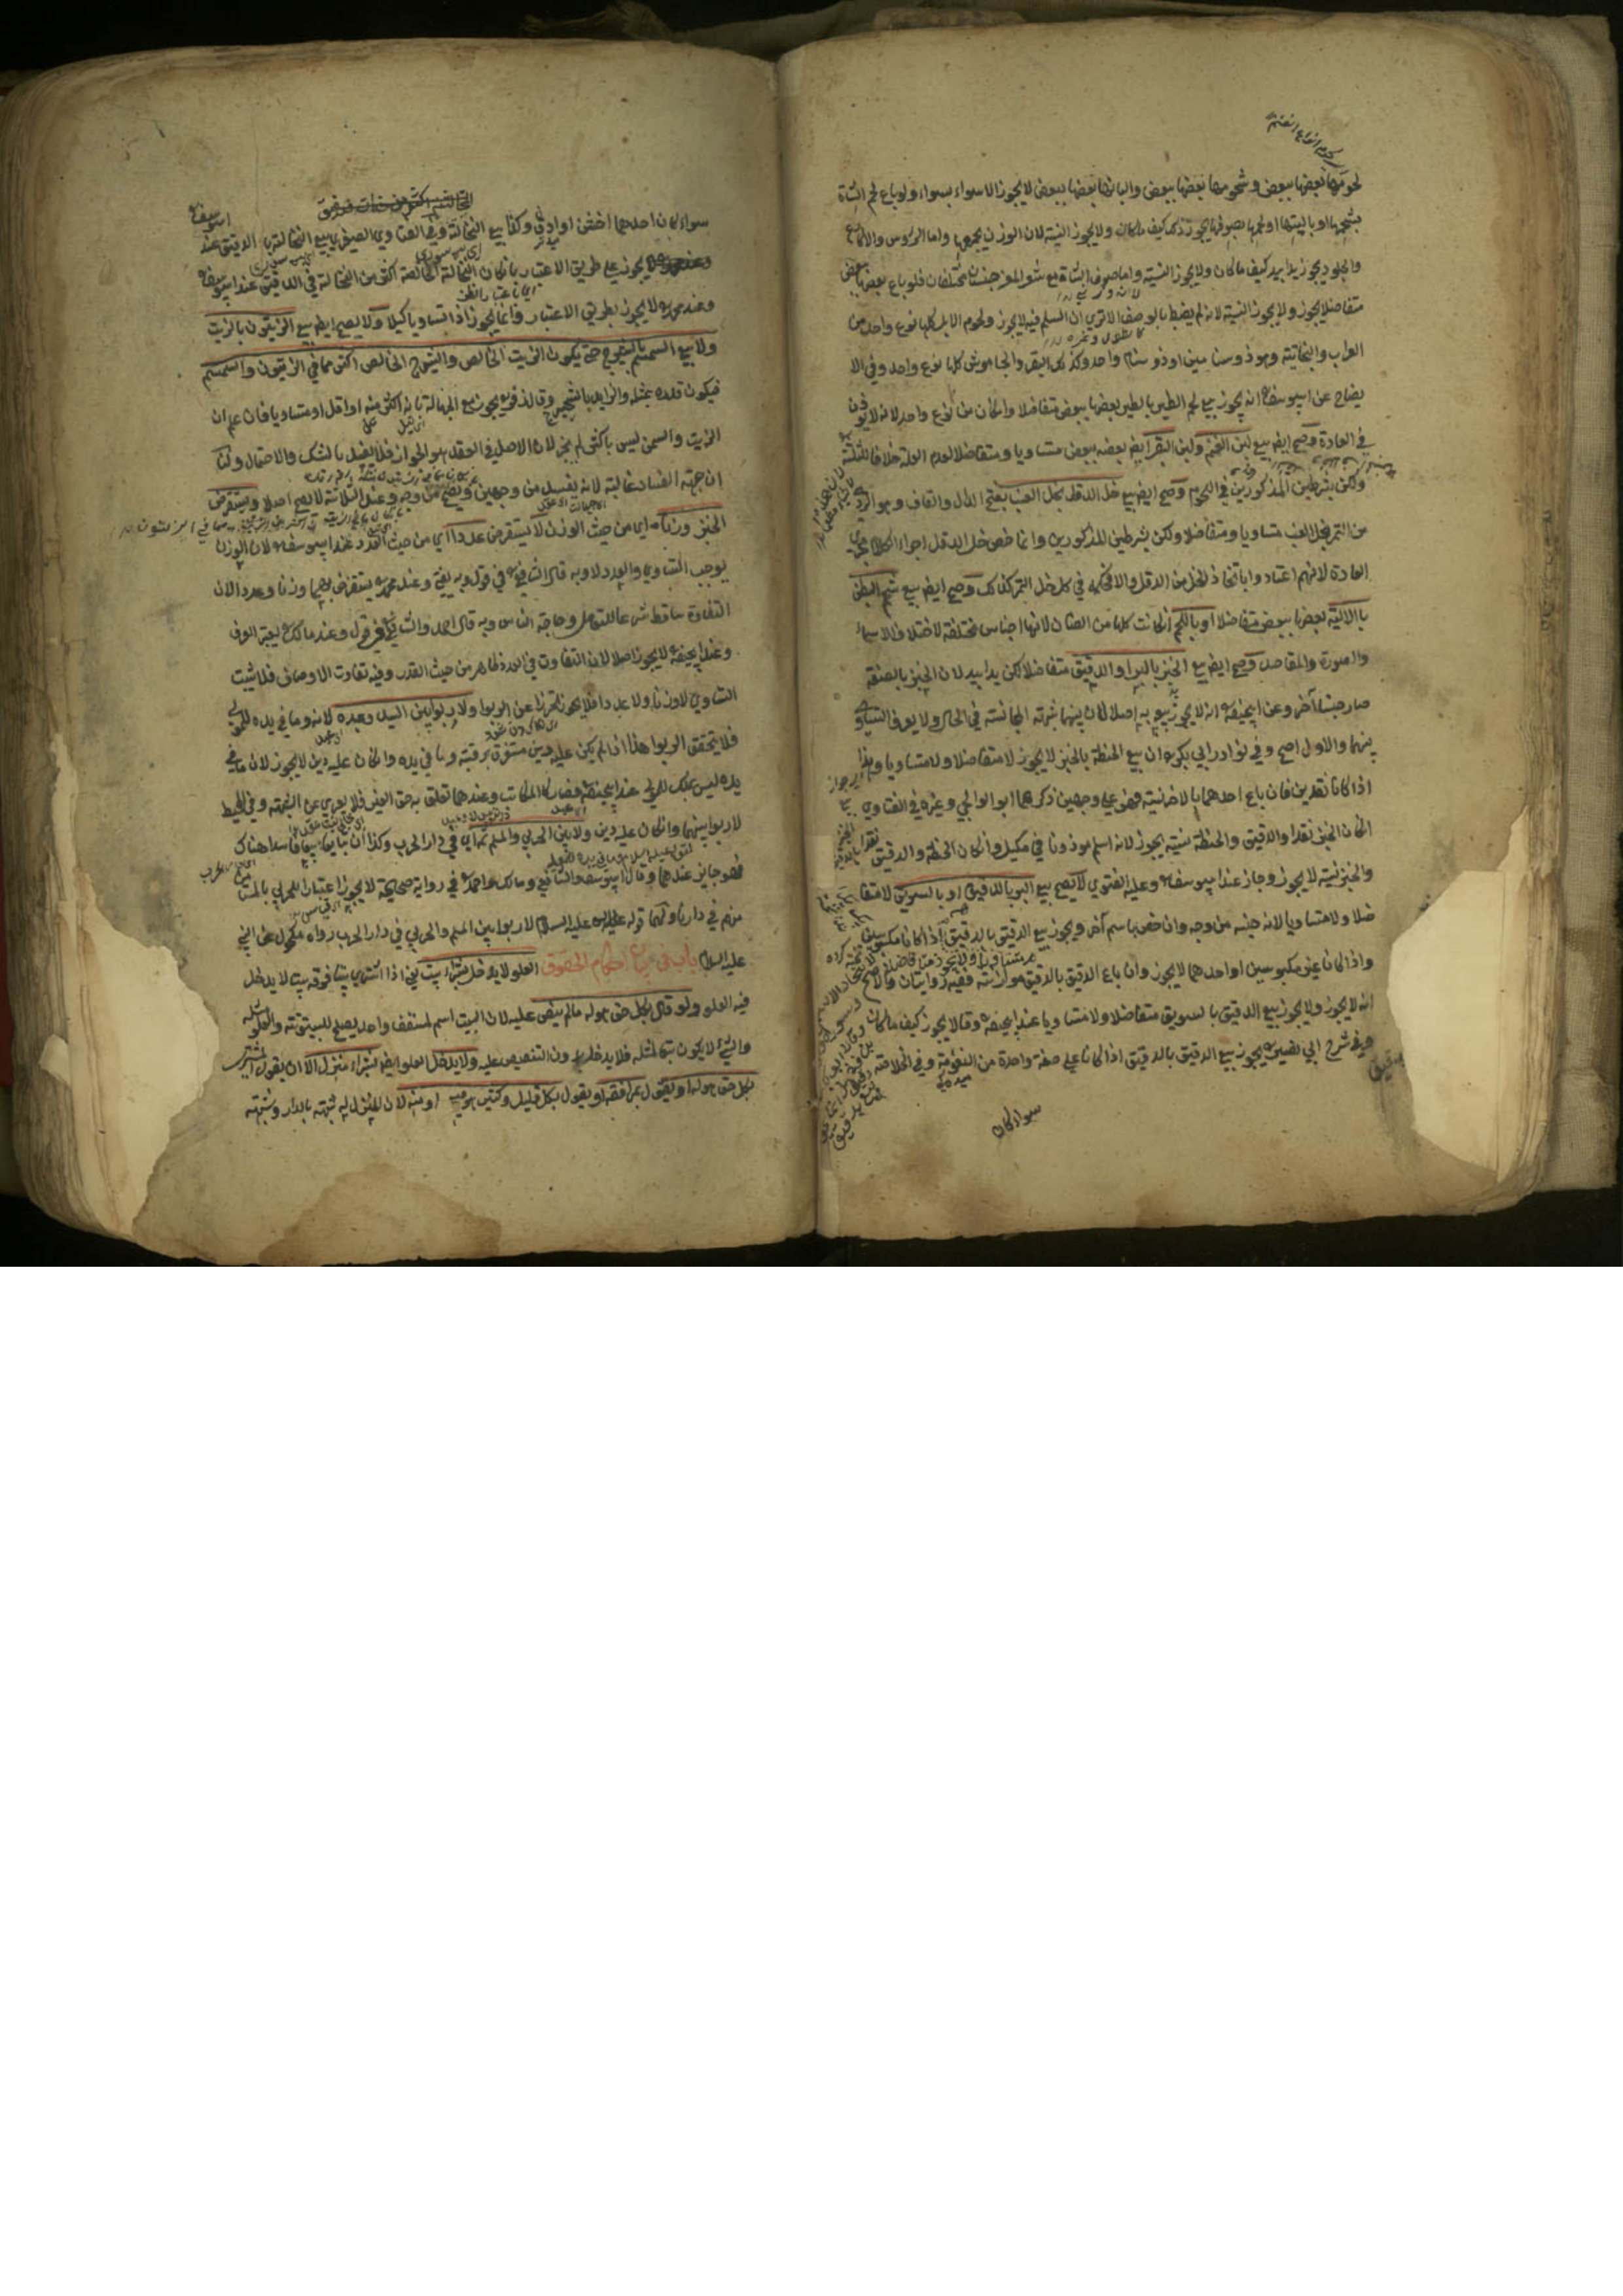 لحومها بعضها ببعض وشحومها بعضها ببعض والبانها بعضها ببعض لا يجوز الا سواء بسواء ولو باع لحم الشاة
بشحمها او باليتها او لحمها بصوفها يجوز ذلك كيف ما كان ولا يجوز النسيئة لان الوزن يجمعهما واما الرؤس والاكارع
والجلود يجوز يدا بيد كيف ما كان ولا يجوز النسيئة واما صوف الشاة مع شعر المعز جنسان مختلفان فلو باع بعضها ببعض
متفاضلا يجوز ولا يجوز النسيئة لانه لم يضبط بالوصف الا ترى ان السلم فيه لا يجوز ولحوم الابل كلها نوع واحد من
العراب والبخاتية وهو ذو سنامين او ذو سنام واحد وكذلك البقر والجاموس كلها نوع واحد وفي الا
يضاح عن ابيوسف انه يجوز بيع لحم الطير بالطير بعضها ببعض متفاضلا وان كان من نوع واحد لانه لا يوزن
في العادة وصح ايضا بيع لبن الغنم ولبن البقر ايضا بعضه ببعض متساويا ومتفاضلا لعدم العلة خلافا للثلثة
ولكن بشرطين المذكورين في اللحوم وصح ايضا بيع خل الدقل بخل العنب بفتح الدال والقاف وهو الردي
من التمر بخل العنب متساويا ومتفاضلا ولكن بشرطين المذكورين وانما خص خل الدقل اجراء للكلام مجرى
العادة لانهم اعتادوا باتخاذ الخل من الدقل والا فالحكم في كل خل التمر كذلك وصح ايضا بيع شحم البطن
بالالية بعضها ببعض متفاضلا او باللحم ان كانت كلها من الضان لانها اجناس مختلفة لاختلاف الاسماء
والصورة والمقاصد وصح ايضا بيع الخبز بالبر او الدقيق متفاضلا لكن يدا بيد لان الخبز بالصنعة
صار جنسا آخر وعن ابيحنيفة انه لا يجوز بيعه به اصلا لان بينهما شبهة المجانسة في الحال ولا يعرف التساوي
بينهما والاول اصح وفي نوادر ابي بكر ان بيع الحنطة بالخبز لا يجوز لا متفاضلا ولا متساويا وهذا
اذا كانا نقدين فان باع احدهما بالاخر نسيئة فهي على وجهين ذكرهما ابو الوالجي وغيره في الفتاوي
ان كان الخبز نقدا والدقيق والحنطة نسيئة يجوز لانه اسلم موزونا في مكيل وان كان الحنطة والدقيق نقدا
والخبز نسيئة لا يجوز وجاز عند ابيوسف وعليه الفتوى لا يصح بيع البر بالدقيق او بالسويق لا متفا
ضلا ولا متساويا لانه جنسه من وجه وان خص باسم آخر ويجوز بيع الدقيق بالدقيق اذا كانا مكبوسين
واذا كانا غير مكبوسين او احدهما لا يجوز وان باع الدقيق بالدقيق موازنة ففيه روايتان والاصح
انه لا يجوز ولا يجوز بيع الدقيق بالسويق متفاضلا ولا متساويا عند ابيحنيفة وقالا يجوز كيف ما كان
وفي شرح ابي نصير يجوز بيع الدقيق بالدقيق اذا كانا على صفة واحدة من النعومة وفي الخلاصة
سواء كان
سواء كان احدهما اخشن او ادق وكذا بيع النخالة وفي الفتاوي الصغرى بيع النخالة بالدقيق عند ابيوسف
يجوز على طريق الاعتبار بان كان النخالة الخالصة اكثر من النخالة في الدقيق عند ابيوسف
وعند محمد لا يجوز بطريق الاعتبار وانما يجوز اذا تساويا كيلا ولا يصح ايضا بيع الزيتون بالزيت
ولا بيع السمسم بالشيرج حتى يكون الزيت الخالص والشيرج الخالص اكثر مما في الزيتون والسمسم
فيكون قدره بمثله والزايد بالثجير وقال زفر يجوز مع الجهالة بانه اكثر منه او اقل او متساويا فان علم ان
الزيت والسمن ليس باكثر لم يجز لان الاصل في العقد هو الجواز فلا يفسد بالشك والاحتمال ولنا
ان جهة الفساد غالبة لانه يفسد من وجهين ويصح من وجه وعند الثلاثة لا يصح اصلا ويستقرض
الخبز وزنا اي من حيث الوزن لا يستقرض عددا اي من حيث العدد عند ابيوسف لان الوزن
يوجب التساوي والعدد لا وبه قال الشافعي في قول وبه يفتى وعند محمد يستقرض بهما وزنا وعددا لان
التفاوت ساقط شرعا للتعامل وحاجة الناس وبه قال احمد والشافعي في قول وعند مالك يعتبر العرف
وعند ابيحنيفة لا يجوز اصلا لان التفاوت في العدد ظاهر من حيث القدر وفيه تفاوت الاوصاف فلا يثبت
التساوي لا وزنا ولا عددا فلا يجوز تحرزا عن الربوا ولا ربوا بين السيد وعبده لانه وما في يده للمولى
فلا يتحقق الربوا هذا اذا لم يكن عليه دين مستغرق برقبته وما في يده وان كان عليه دين لا يجوز لان ما في
يده ليس بملك للمولى عند ابيحنيفة فصار كالمكاتب وعندهما تعلق به حق الغير فلا يعرى عن الشبهة وفي المحيط
لا ربوا بينهما وان كان عليه دين ولا بين الحربي والمسلم ثمه اي في دار الحرب وكذا ان تبايعا بيعا فاسدا هناك
فهو جايز عندهما وقال ابيوسف والشافعي ومالك واحمد في رواية صحيحة لا يجوز اعتبارا للحربي بالمستا
من في دارنا ولهما قوله عليه السلام لا ربوا بين المسلم والحربي في دار الحرب رواه مكحول عن النبي
عليه السلام باب في بيان احكام الحقوق العلو لا يدخل بشراء بيت يعني اذا اشترى بيتا فوقه بيت لا يدخل
فيه العلو ولو قال بكل حق هو له ما لم ينص عليه لان البيت اسم لمسقف واحد يصلح للبيتوتة والعلو مثله
والشيء لا يكون تبعا لمثله فلا يدخل بدون التنصيص عليه ولا يدخل العلو ايضا بشراء منزل الا ان يقول المشتري
بكل حق هو له او يقول بمرافقه او يقول بكل قليل وكثير هو فيه او منه لان المنزل له شبهة بالدار وشبهة